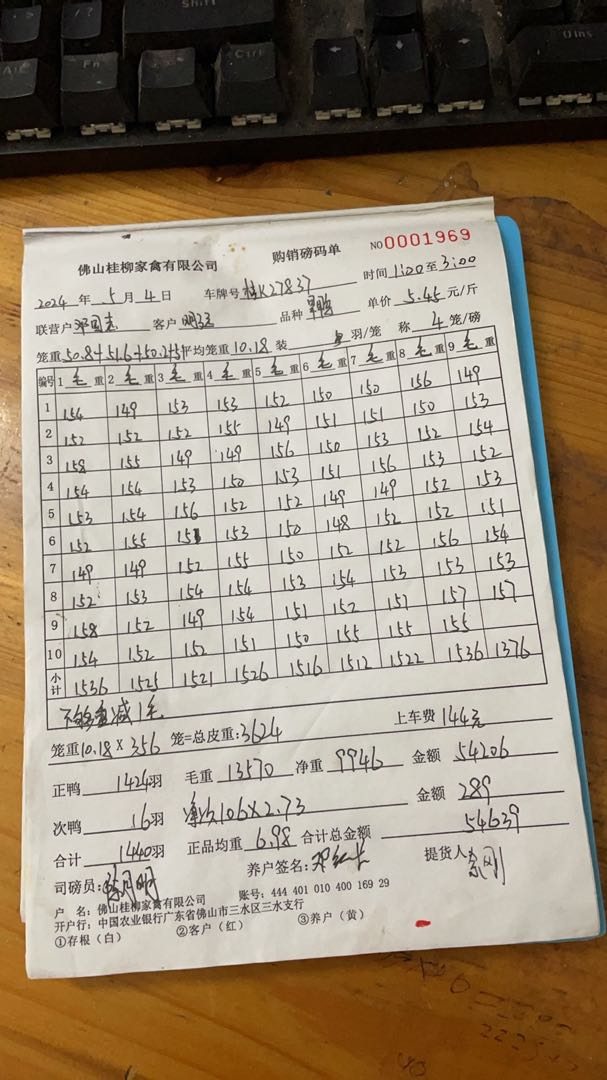 Shift
Alt
Fn
Ctrl
0 Ins
佛山桂柳家禽有限公司 购销磅码单 NO 0001969
2024 年 5 月 4 日 车牌号 桂K27837 时间 1:00 至 3:00
联营户 邓国志 客户 品种 单价 5.45 元/斤
笼重 50.8+51.6+50.2+51 平均笼重 10.18 装 羽/笼 称 4 笼/磅
编号 1 毛 重 2 毛 重 3 毛 重 4 毛 重 5 毛 重 6 毛 重 7 毛 重 8 毛 重 9 毛 重
1 154 149 153 153 152 150 150 156 149
2 152 152 152 155 149 151 151 150 153
3 158 155 149 149 156 150 153 152 154
4 154 154 153 150 153 151 156 153 152
5 153 154 156 152 152 149 149 152 153
6 152 155 151 153 150 148 152 152 151
7 149 149 152 155 150 152 152 156 154
8 152 153 154 154 153 154 153 153 153
9 158 152 149 154 151 152 151 157 157
10 154 152 152 151 150 155 155 155
小计 1536 1525 1521 1526 1516 1512 1522 1536 1376
减1毛
笼重 10.18 × 356 笼=总皮重: 3624 上车费 144元
正鸭 1424 羽 毛重 13570 净重 9946 金额 54206
次鸭 16 羽 106×2.73 金额 289
合计 1440 羽 正品均重 6.98 合计总金额 54639
司磅员: 养户签名: 提货人
户 名: 佛山桂柳家禽有限公司 账号: 444 401 010 400 169 29
开户行: 中国农业银行广东省佛山市三水区三水支行
①存根（白） ②客户（红） ③养户（黄）